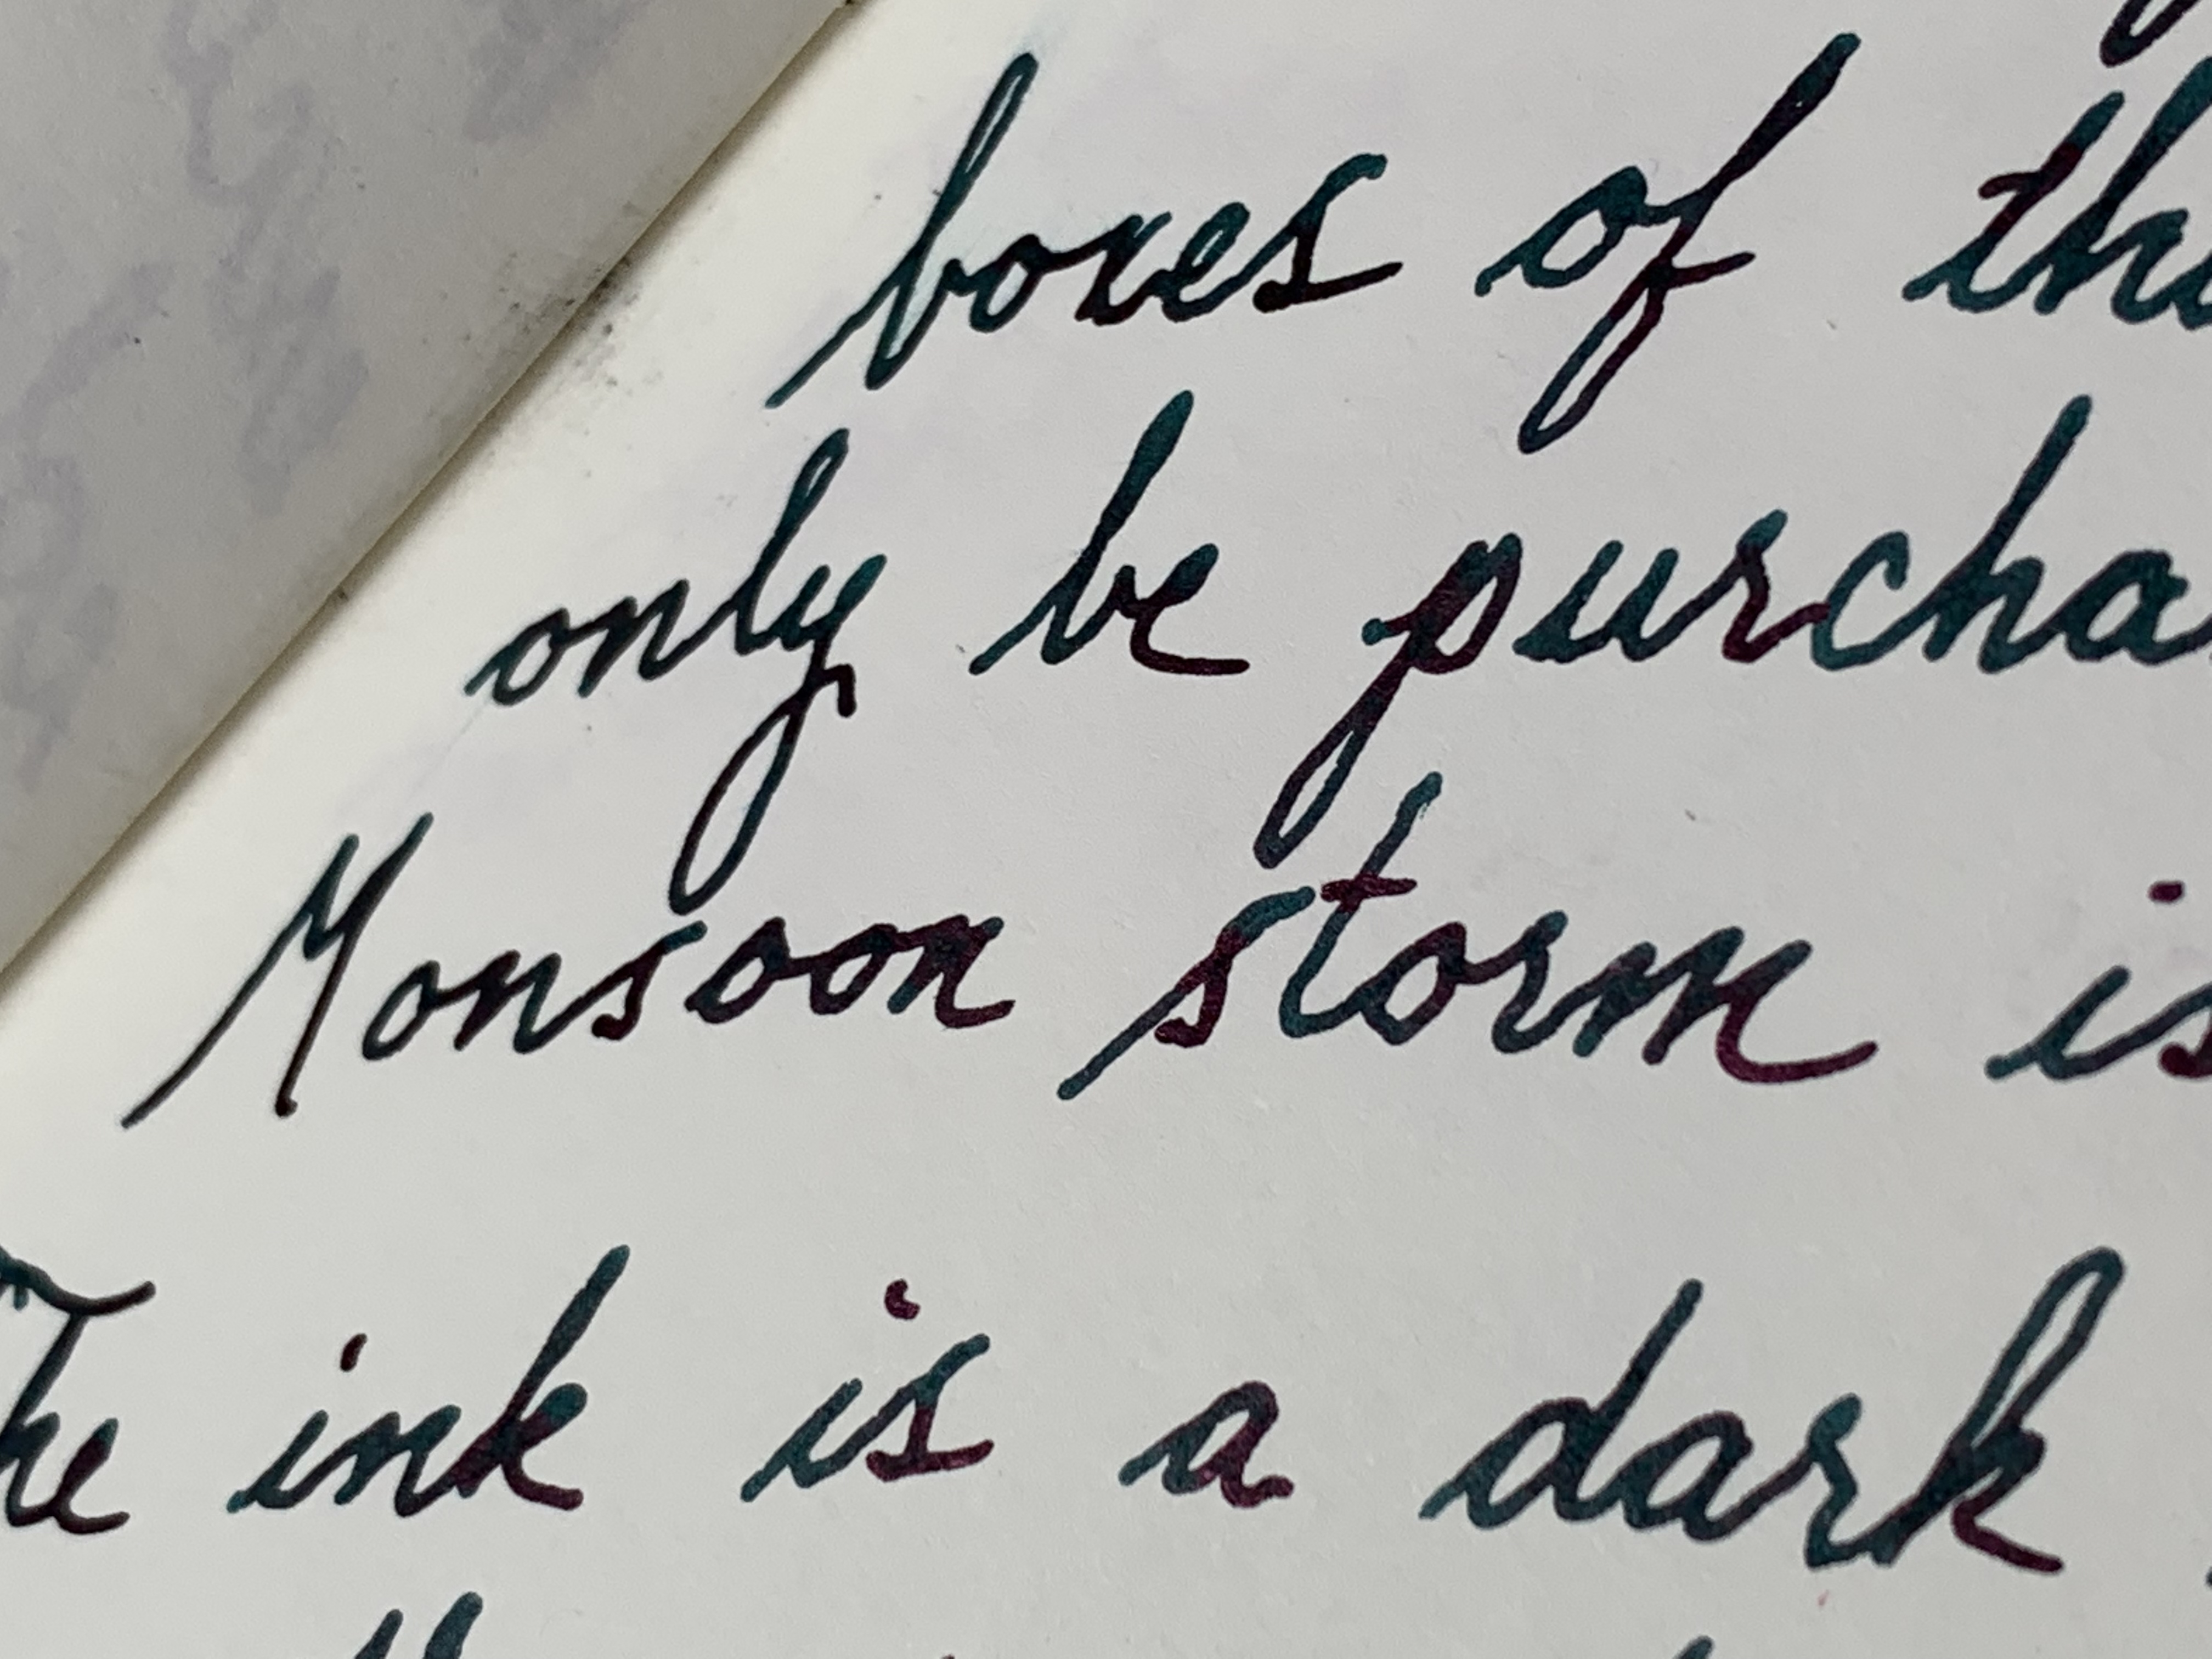 boxes of
only be
Monsoon storm is
The ink is a dark